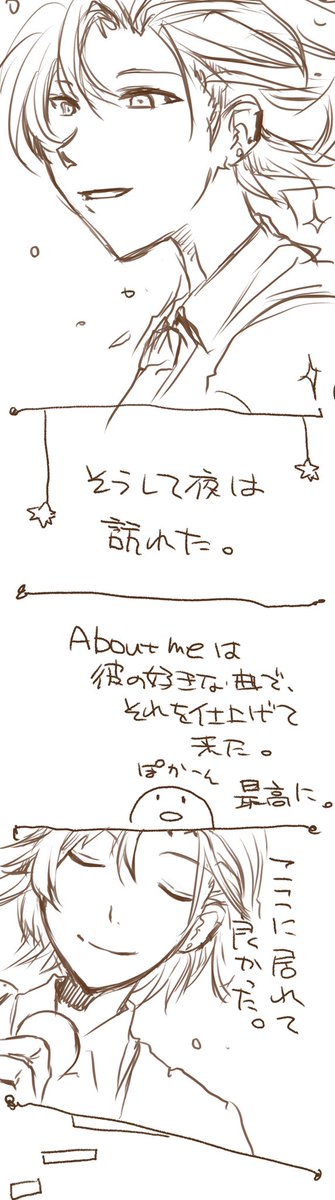 そうして夜は
訪れた。
About meは
彼の好きな曲で、
それを仕上げて
来た。
最高に。
ぽかーん
ここに居れて
良かった。